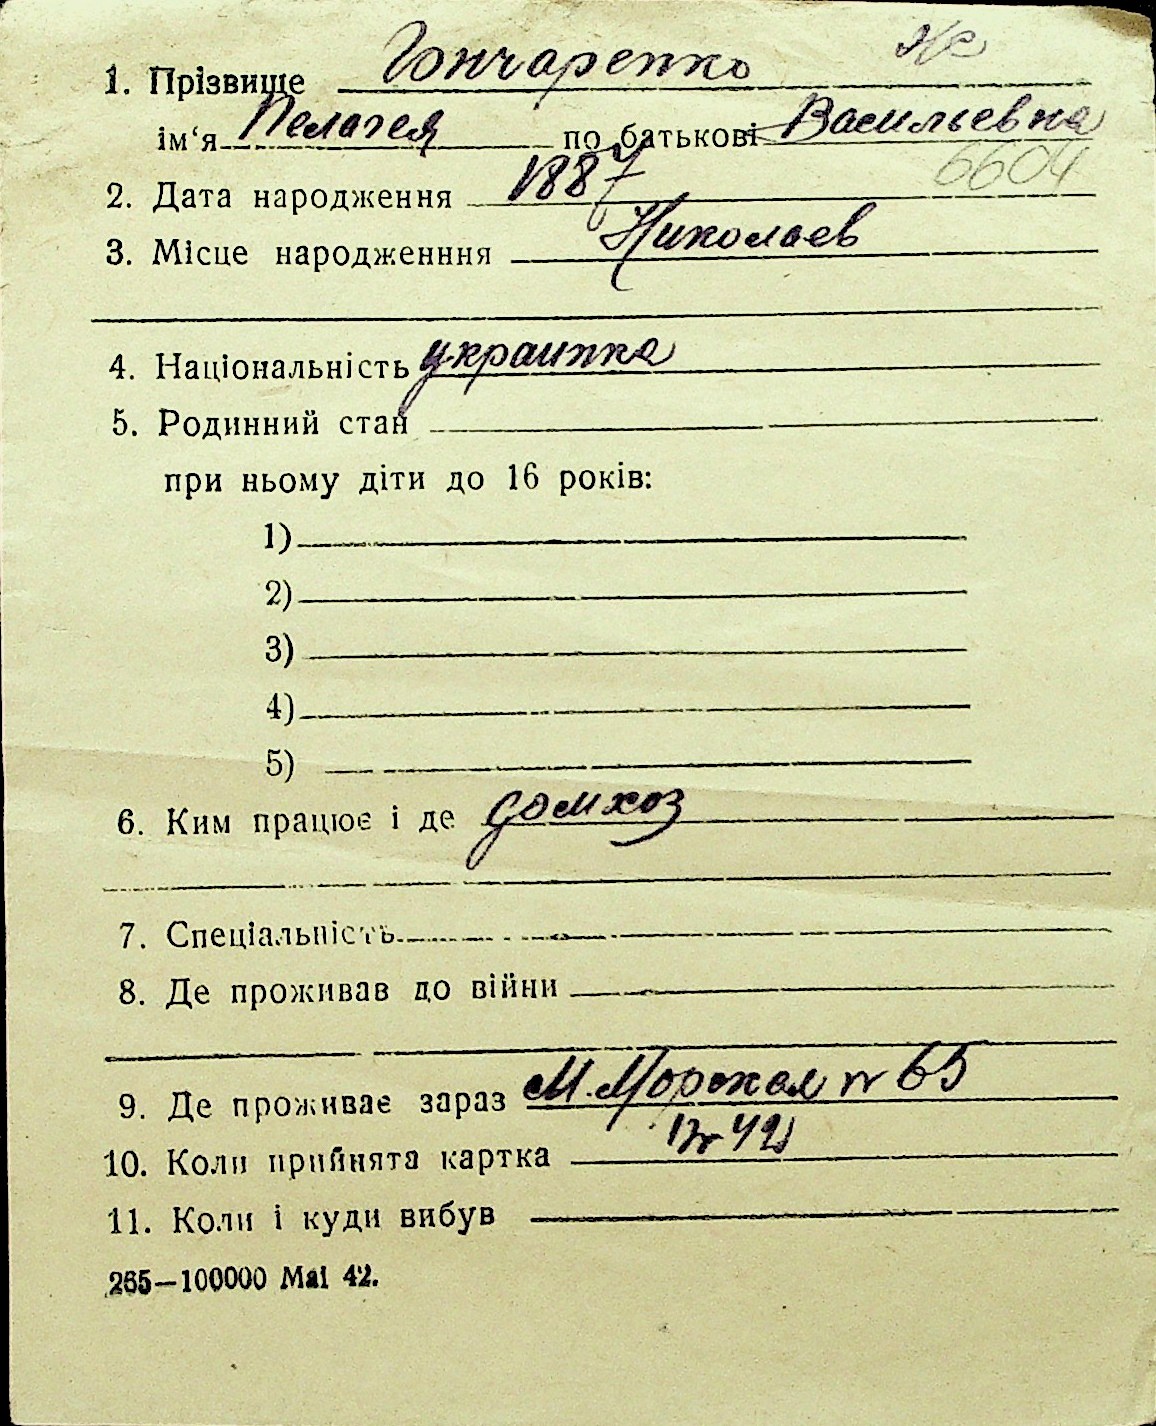 1. Прізвище Гончаренко Ж
ім‘я Пелагея по батькові Васильевна
6604
2. Дата народження 1887
3. Місце народженння Николаев
4. Національність украинка
5. Родинний стан
при ньому діти до 16 років:
1)
2)
3)
4)
5)
6. Ким працює і де домхоз
7. Спеціальність
8. Де проживав до війни
9. Де проживає зараз М. Морская № 65
10. Коли прийнята картка
11. Коли і куди вибув
265—100000 Mai 42.